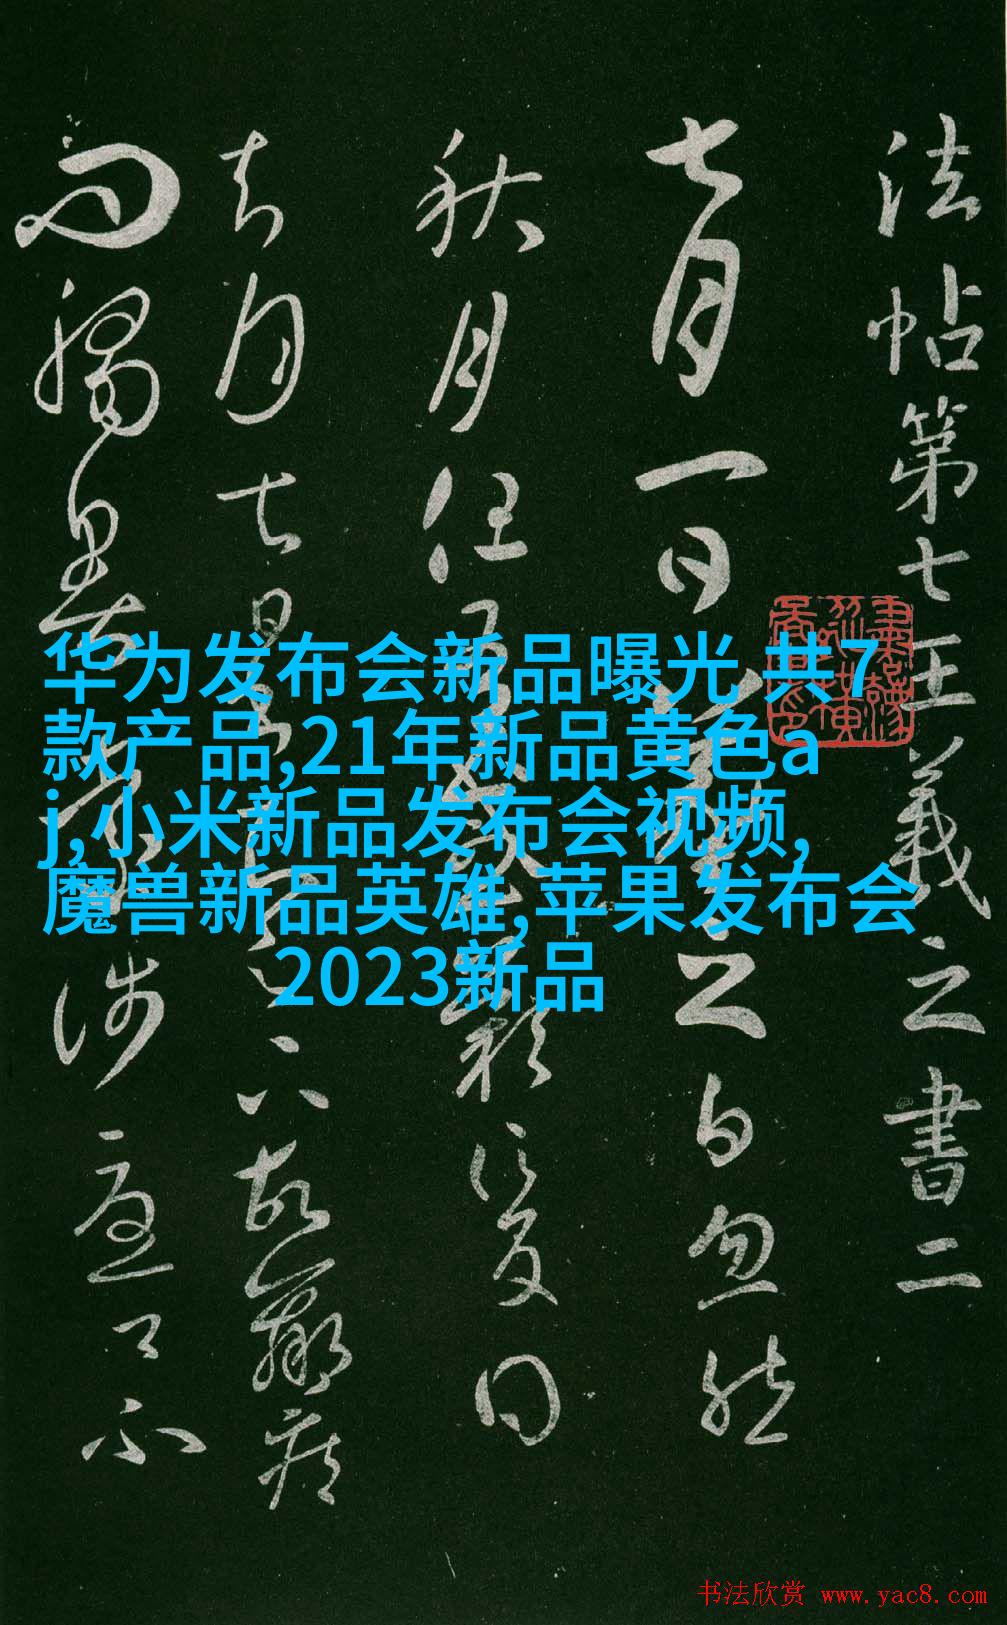 华为发布会新品曝光 共7
款产品,21年新品黄色a
j,小米新品发布会视频,
魔兽新品英雄,苹果发布会
2023新品
法帖第七王羲之書二
七月一日羲之白忽然
秋月但有感歎信反
去月七日書知足下故羸疾
而觸暑遠涉憂卿不
书法欣赏 www.yac8.com